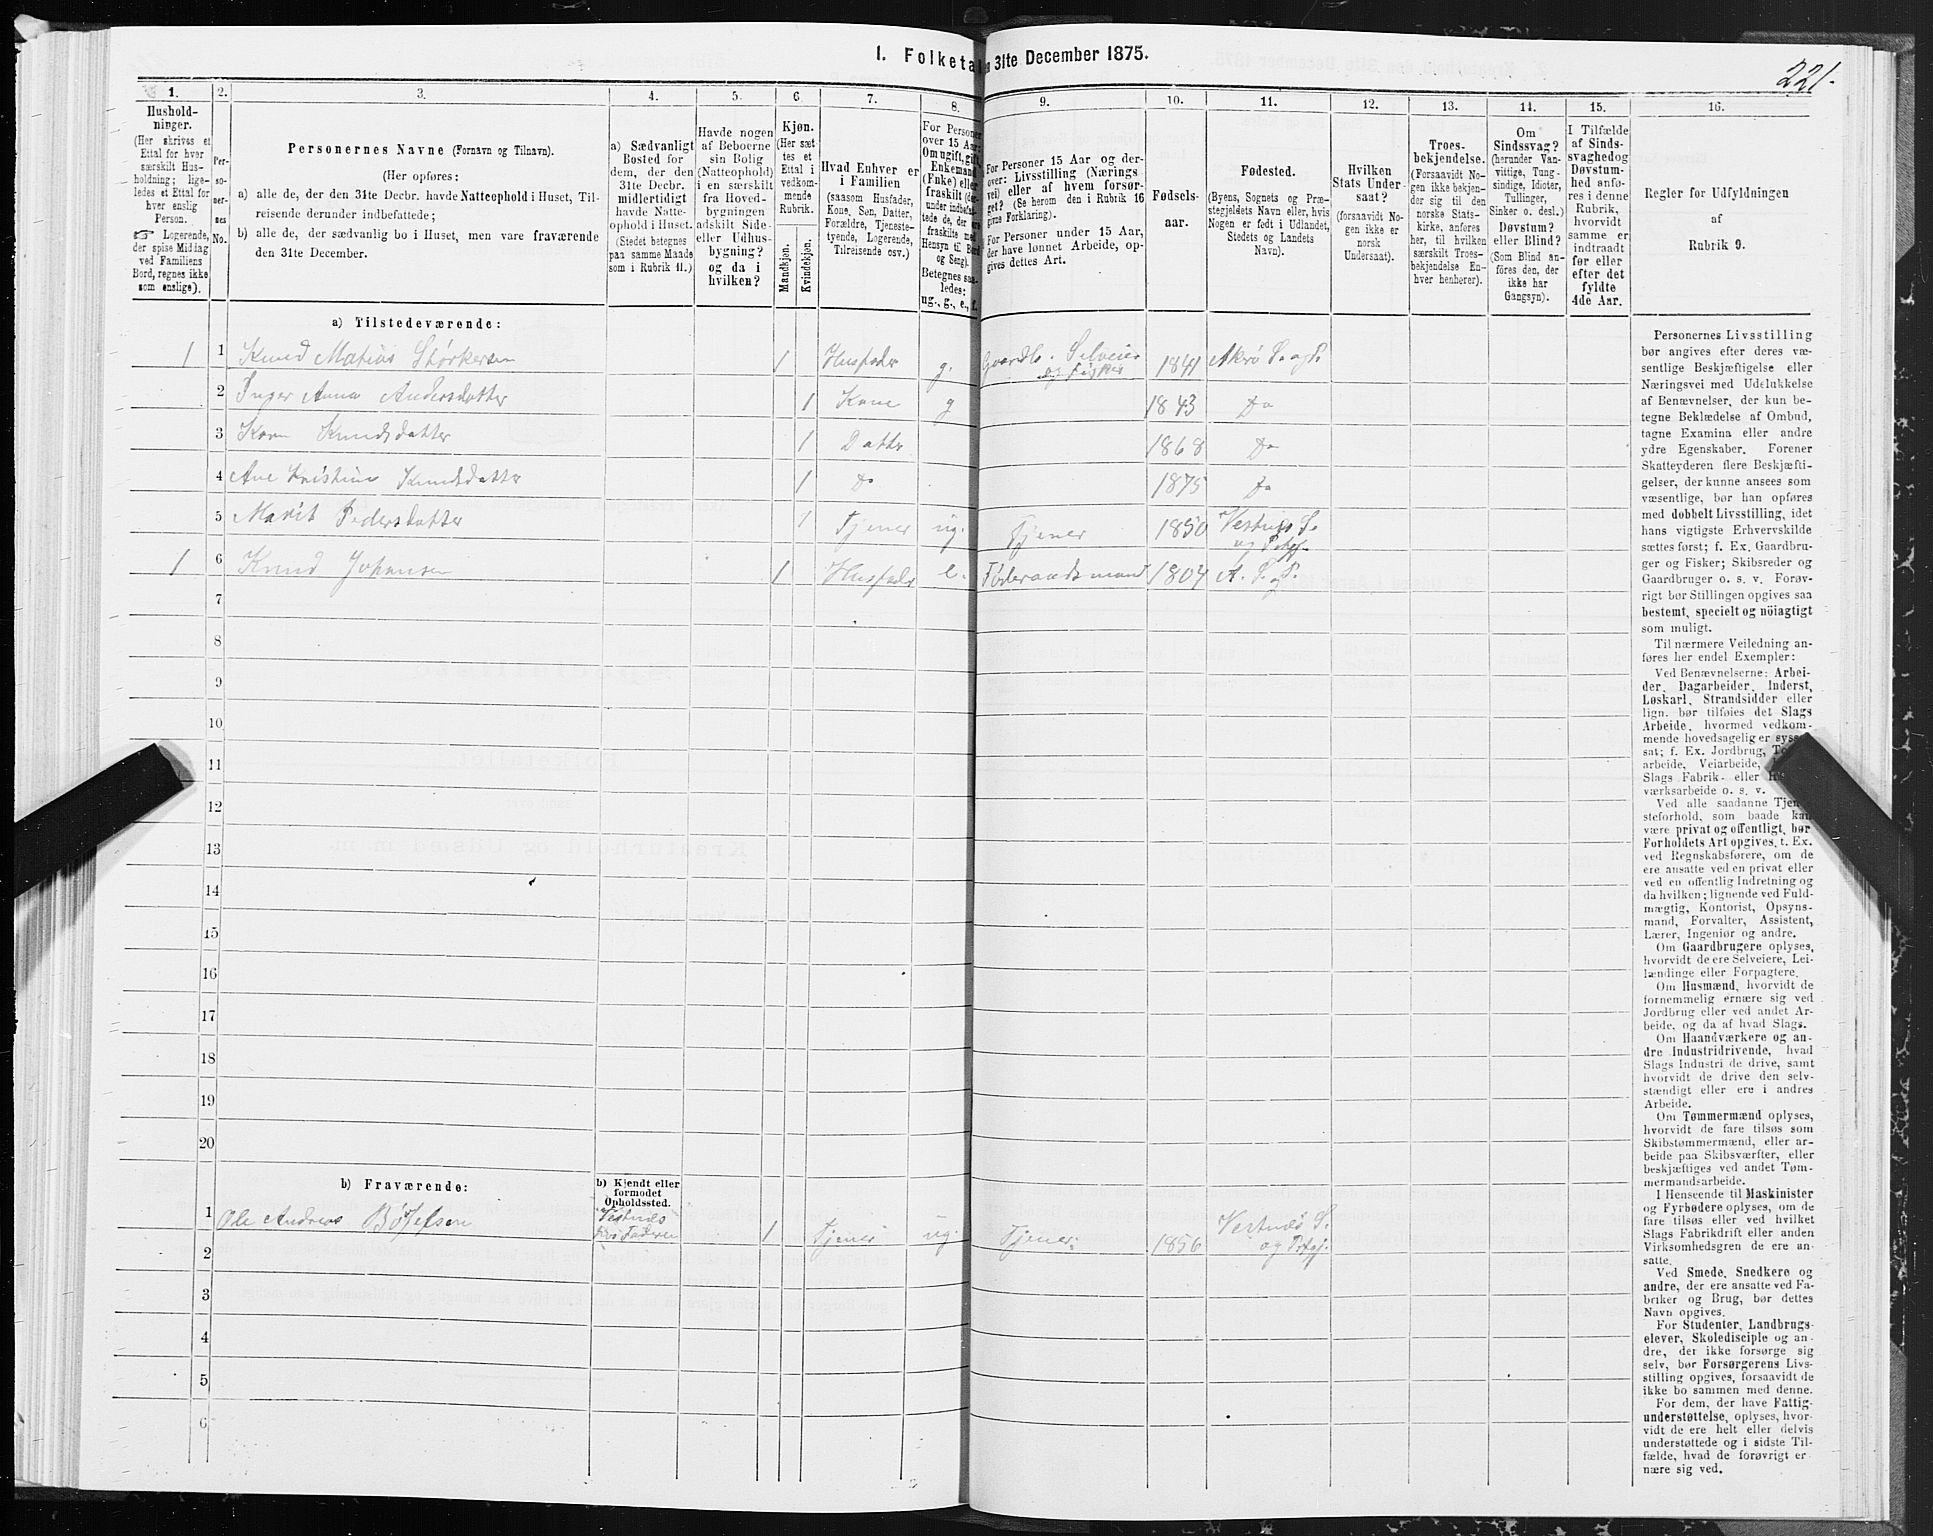 1. Folketal
en 31te December 1875.
221.
1.
Hushold-
ninger.
(Her skrives et
Ettal for hver
særskilt Hus-
holdning; lige-
ledes et Ettal for
hver enslig
Person.
☞ Logerende,
der spise Middag
ved Familiens
Bord, regnes ikke
som enslige).
2.
Per-
so-
ner-
nes
No.
3.
Personernes Navne (Fornavn og Tilnavn).
(Her opføres:
a) alle de, der den 31te Decbr. havde Natteophold i Huset, Til-
reisende derunder indbefattede;
b) alle de, der sædvanlig bo i Huset, men vare fraværende
den 31te December.
4.
a) Sædvanligt
Bosted for
dem, der den
31te Decbr.
midlertidigt
havde Natte-
ophold i Huset.
(Stedet betegnes
paa samme Maade
som i Rubrik 11.)
5.
Havde nogen
af Beboerne
sin Bolig
(Natteophold)
i en særskilt
fra Hoved-
bygningen
adskilt Side-
eller Udhus-
bygning?
og da i
hvilken?
6
Kjøn.
(Her sæt-
tes et
Ettal i
vedkom-
mende
Rubrik.
Mandkjøn.
Kvindekjøn.
7.
Hvad Enhver er
i Familien
(saasom Husfader,
Kone, Søn, Datter,
Forældre, Tjeneste-
tyende, Logerende,
Tilreisende osv.)
8.
For Personer
over 15 Aar:
Om ugift, gift,
Enkemand
(Enke) eller
fraskilt (der-
under indbefat-
tede de, der ere
fraskilte med
Hensyn til Bord
og Seng).
Betegnes saa-
ledes:
ug., g., e., f.
9.
For Personer 15 Aar og der-
over: Livsstilling (Nærings
vei) eller af hvem forsør-
get? (Se herom den i Rubrik 16
givne Forklaring).
For Personer under 15 Aar,
der have lønnet Arbeide, op-
gives dettes Art.
10.
Fødsels-
aar.
11.
Fødested.
(Byens, Sognets og Præ-
stegjeldets Navn eller, hvis
Nogen er født i Udlandet,
Stedets og Landets
Navn).
12.
Hvilken
Stats Under-
saat?
(forsaavidt No-
gen ikke er
norsk
Undersaat).
13.
Troes-
bekjendelse.
(Forsaavidt No-
gen ikke bekjen-
der sig til den
norske Stats-
kirke, anføres
her, til hvilken
særskilt Troes-
bekjendelse En-
hver henhører).
14.
Om
Sindssvag?
(herunder Van-
vittige, Tung-
sindige, Idioter,
Tullinger,
Sinker o. desl.)
Døvstum?
eller Blind?
(Som Blind an-
føres den, der
ikke har
Gangsyn).
15.
I Tilfælde
af Sinds-
svaghed og
Døvstum-
hed anfø-
res i denne
Rubrik,
hvorvidt
samme er
indtraadt
før eller
efter det
fyldte
4de Aar.
16.
Regler for Udfyldningen
af
Rubrik 9.
a) Tilstedeværende:
1 1 Knud Matias Størkersen 1 Husfader g. Gaardb. Selveier
og Fisker 1841 Akrø S. og P.
2 Inger Anna Andersdatter 1 Kone g 1843 Do
3 Karn Knudsdatter 1 Datter 1868 Do
4 Ane Kristine Knudsdatter 1 Do 1875 Do
5 Marit Pedersdatter 1 Tjener ug. Tjener 1850 Vestnes S.
og Prtgj.
1 6 Knud Johansen 1 Husfader e. Føderaadsmand 1804 A. S. og P.
7
8
9
10
11
12
13
14
15
16
17
18
19
20
b) Fraværende:
b) Kjendt eller
formodet
Opholdssted.
1 Ole Andreas Vestnæs
hos Faderen 1 Tjener ug. Tjener 1856 Vestnæs S.
og Prtgj.
2
3
4
5
6
Personernes Livsstilling
bør angives efter deres væ-
sentlige Beskjæftigelse eller
Næringsvei med Udelukkelse
af Benævnelser, der kun be-
tegne Beklædelse af Ombud,
tagne Examina eller andre
ydre Egenskaber. Forener
Skatteyderen flere Beskjæfti-
gelser, der kunne ansees som
væsentlige, bør han opføres
med dobbelt Livsstilling, idet
hans vigtigste Erhvervskilde
sættes først; f. Ex. Gaardbru-
ger og Fisker; Skibsreder og
Gaardbruger o. s. v. Forøv-
rigt bør Stillingen opgives saa
bestemt, specielt og nöiagtigt
som muligt.
Til nærmere Veiledning an-
føres her endel Exempler:
Ved Benævnelserne: Arbei-
der, Dagarbeider, Inderst,
Løskarl, Strandsidder eller
lign. bør tilføies det Slags
Arbeide, hvormed vedkom-
mende hovedsagelig er syssel-
sat; f. Ex. Jordbrug,
arbeide, Veiarbeide,
Slags Fabrik- eller
værksarbeide o. s. v.
Ved alle saadanne Tjen-
steforhold, som baade kan
være privat og offentligt, bør
Forholdets Art opgives, t. Ex.
ved Regnskabsførere, om de
ere ansatte ved en privat eller
ved en offentlig Indretning og
da hvilken; lignende ved Fuld-
mægtig, Kontorist, Opsyns-
mand, Forvalter, Assistent,
Lærer, Ingeniør og andre.
Om Gaardbrugere oplyses,
hvorvidt de ere Selveiere, Lei-
lændinge eller Forpagtere.
Om Husmænd, hvorvidt de
fornemmelig ernære sig ved
Jordbrug eller ved andet Ar-
beide, og da af hvad Slags.
Om Haandværkere og an-
dre Industridrivende, hvad
Slags Industri de drive, samt
hvorvidt de drive den selv-
stændigt eller ere i andres
Arbeide.
Om Tømmermænd oplyses,
hvorvidt de fare tilsøs som
Skibstømmermænd, eller ar-
beide paa Skibsværfter, eller
beskjæftiges ved andet Tøm-
mermandsarbeide.
I Henseende til Maskinister
og Fyrbødere oplyses, om de
fare tilsøs eller ved hvilket
Slags Fabrikdrift eller anden
Virksomhedsgren de ere an-
satte.
Ved Smede, Snedkere og
andre, der ere ansatte ved Fa-
briker og Brug, bør dettes
Navn opgives.
For Studenter, Landbrugs-
elever, Skoledisciple og an-
dre, der ikke forsørge sig
selv, bør Forsørgerens Livs-
stilling opgives, forsaavidt de
ikke bo sammen med denne.
For dem, der have Fattig-
understøttelse, oplyses, hvor-
vidt de ere helt eller delvis
understøttede og i sidste Til-
fælde, hvad de forøvrigt er-
nære sig ved.